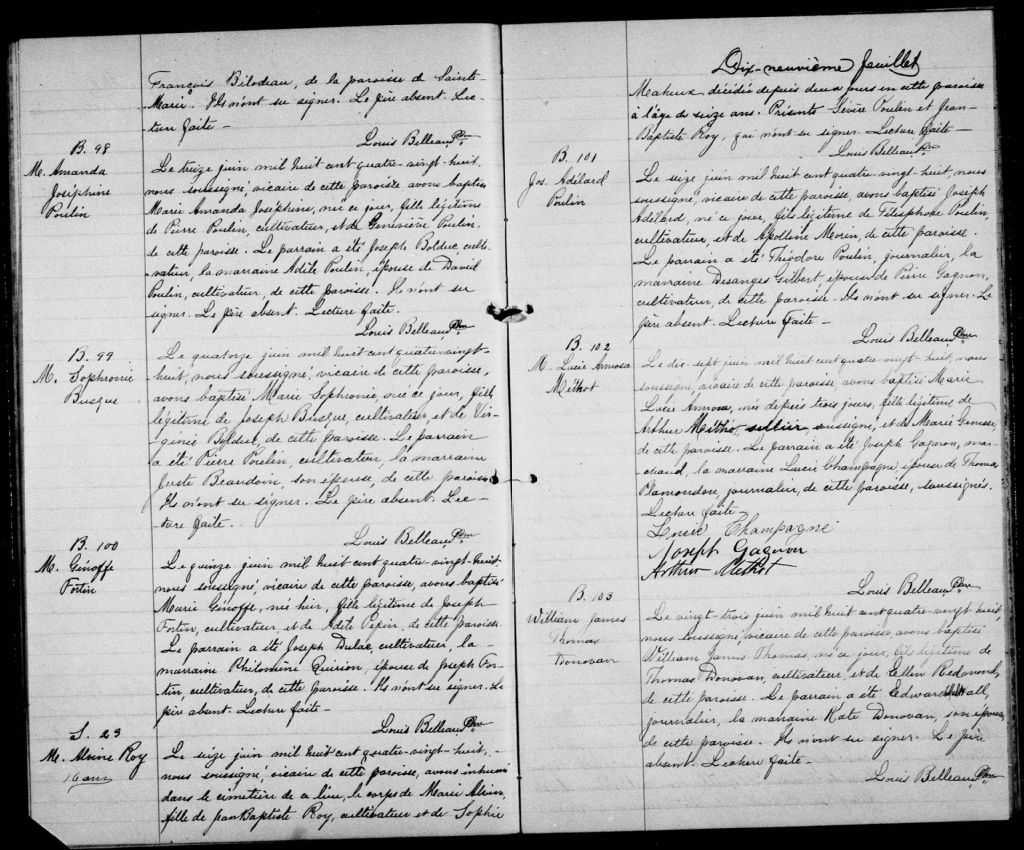 François Bilodeau, de la paroisse de Sainte-
Marie. Ils n'ont su signer. Le père absent. Lec-
ture faite —
Louis Belleau Ptre
B. 98
M. Amanda
Joséphine
Poulin
Le treize juin mil huit cent quatre-vingt-huit,
nous soussigné, vicaire de cette paroisse avons baptisé
Marie Amanda Joséphine, née ce jour, fille légitime
de Pierre Poulin, cultivateur, et de Geneviève Poulin,
de cette paroisse. Le parrain a été Joseph Bolduc culti-
vateur, la marraine Adèle Poulin, épouse de David
Poulin, cultivateur, de cette paroisse. Ils n'ont su
signer. Le père absent. Lecture faite.
Louis Belleau Ptre
B. 99
M. Sophronie
Busque
Le quatorze juin mil huit cent quatre-vingt-
huit, nous soussigné, vicaire de cette paroisse,
avons baptisé Marie Sophronie, née ce jour, fille
légitime de Joseph Busque, cultivateur et de Vir-
ginie Bolduc, de cette paroisse. Le parrain
a été Pierre Poulin, cultivateur, la marraine
Juste Beaudoin, son épouse, de cette paroisse
Ils n'ont su signer. Le père absent. Lec-
ture faite.
Louis Belleau Ptre
B. 100
M. Genoffe
Fortin
Le quinze juin mil huit cent quatre-vingt-huit
nous soussigné, vicaire de cette paroisse, avons baptisé
Marie Genoffe, née hier, fille légitime de Joseph
Fortin, cultivateur, et de Adèle Pepin, de cette paroisse
Le parrain a été Joseph Dulac, cultivateur, la
marraine Philomène Quirion, épouse de Joseph For-
tin, cultivateur, de cette paroisse. Ils n'ont su signer. Le
père absent. Lecture faite —
Louis Belleau Ptre
S. 23
M. Roy
16 ans
Le seize juin mil huit cent quatre-vingt-huit,
nous soussigné, vicaire de cette paroisse, avons inhumé
dans le cimetière de ce lieu, le corps de Marie
fille de Jean Baptiste Roy, cultivateur et de Sophie
Dix-neuvième feuillet
Maheux décédée depuis deux jours en cette paroisse
à l'âge de seize ans. Présents Sévère Poulin et Jean-
Baptiste Roy, qui n'ont su signer. Lecture faite —
Louis Belleau Ptre
B. 101
Jos. Adélard
Poulin
Le seize juin mil huit cent quatre-vingt-huit, nous
soussigné, vicaire de cette paroisse, avons baptisé Joseph
Adélard, né ce jour, fils légitime de Télesphore Poulin,
cultivateur, et de Apolline Morin, de cette paroisse.
Le parrain a été Théodore Poulin, journalier, la
marraine Desanges Gilbert, épouse de Pierre Gagnon,
cultivateur, de cette paroisse. Ils n'ont su signer. Le
père absent. Lecture faite —
Louis Belleau Ptre
B. 102
M. Lucie
Méthot
Le dix-sept juin mil huit cent quatre-vingt-huit, nous
soussigné, vicaire de cette paroisse, avons baptisé Marie
Lucie née depuis trois jours, fille légitime de
Arthur Métho, sellier, soussigné, et de Marie
de cette paroisse. Le parrain a été Joseph Gagnon, mar-
chand, la marraine Lucie Champagne, épouse de Thomas
Plamondon, journalier, de cette paroisse, soussignés.
Lecture faite
Lucie Champagne
Joseph Gagnon
Arthur Méthot
Louis Belleau Ptre
B. 103
William James
Thomas
Donovan
Le vingt-trois juin mil huit cent quatre-vingt huit,
nous soussigné, vicaire de cette paroisse, avons baptisé
William James Thomas, né ce jour, fils légitime de
Thomas Donovan, cultivateur, et de Ellen Redmond,
de cette paroisse. Le parrain a été Edward Hall,
journalier, la marraine Kate Donovan, son épouse
de cette paroisse. Ils n'ont su signer. Le père
absent. Lecture faite —
Louis Belleau Ptre